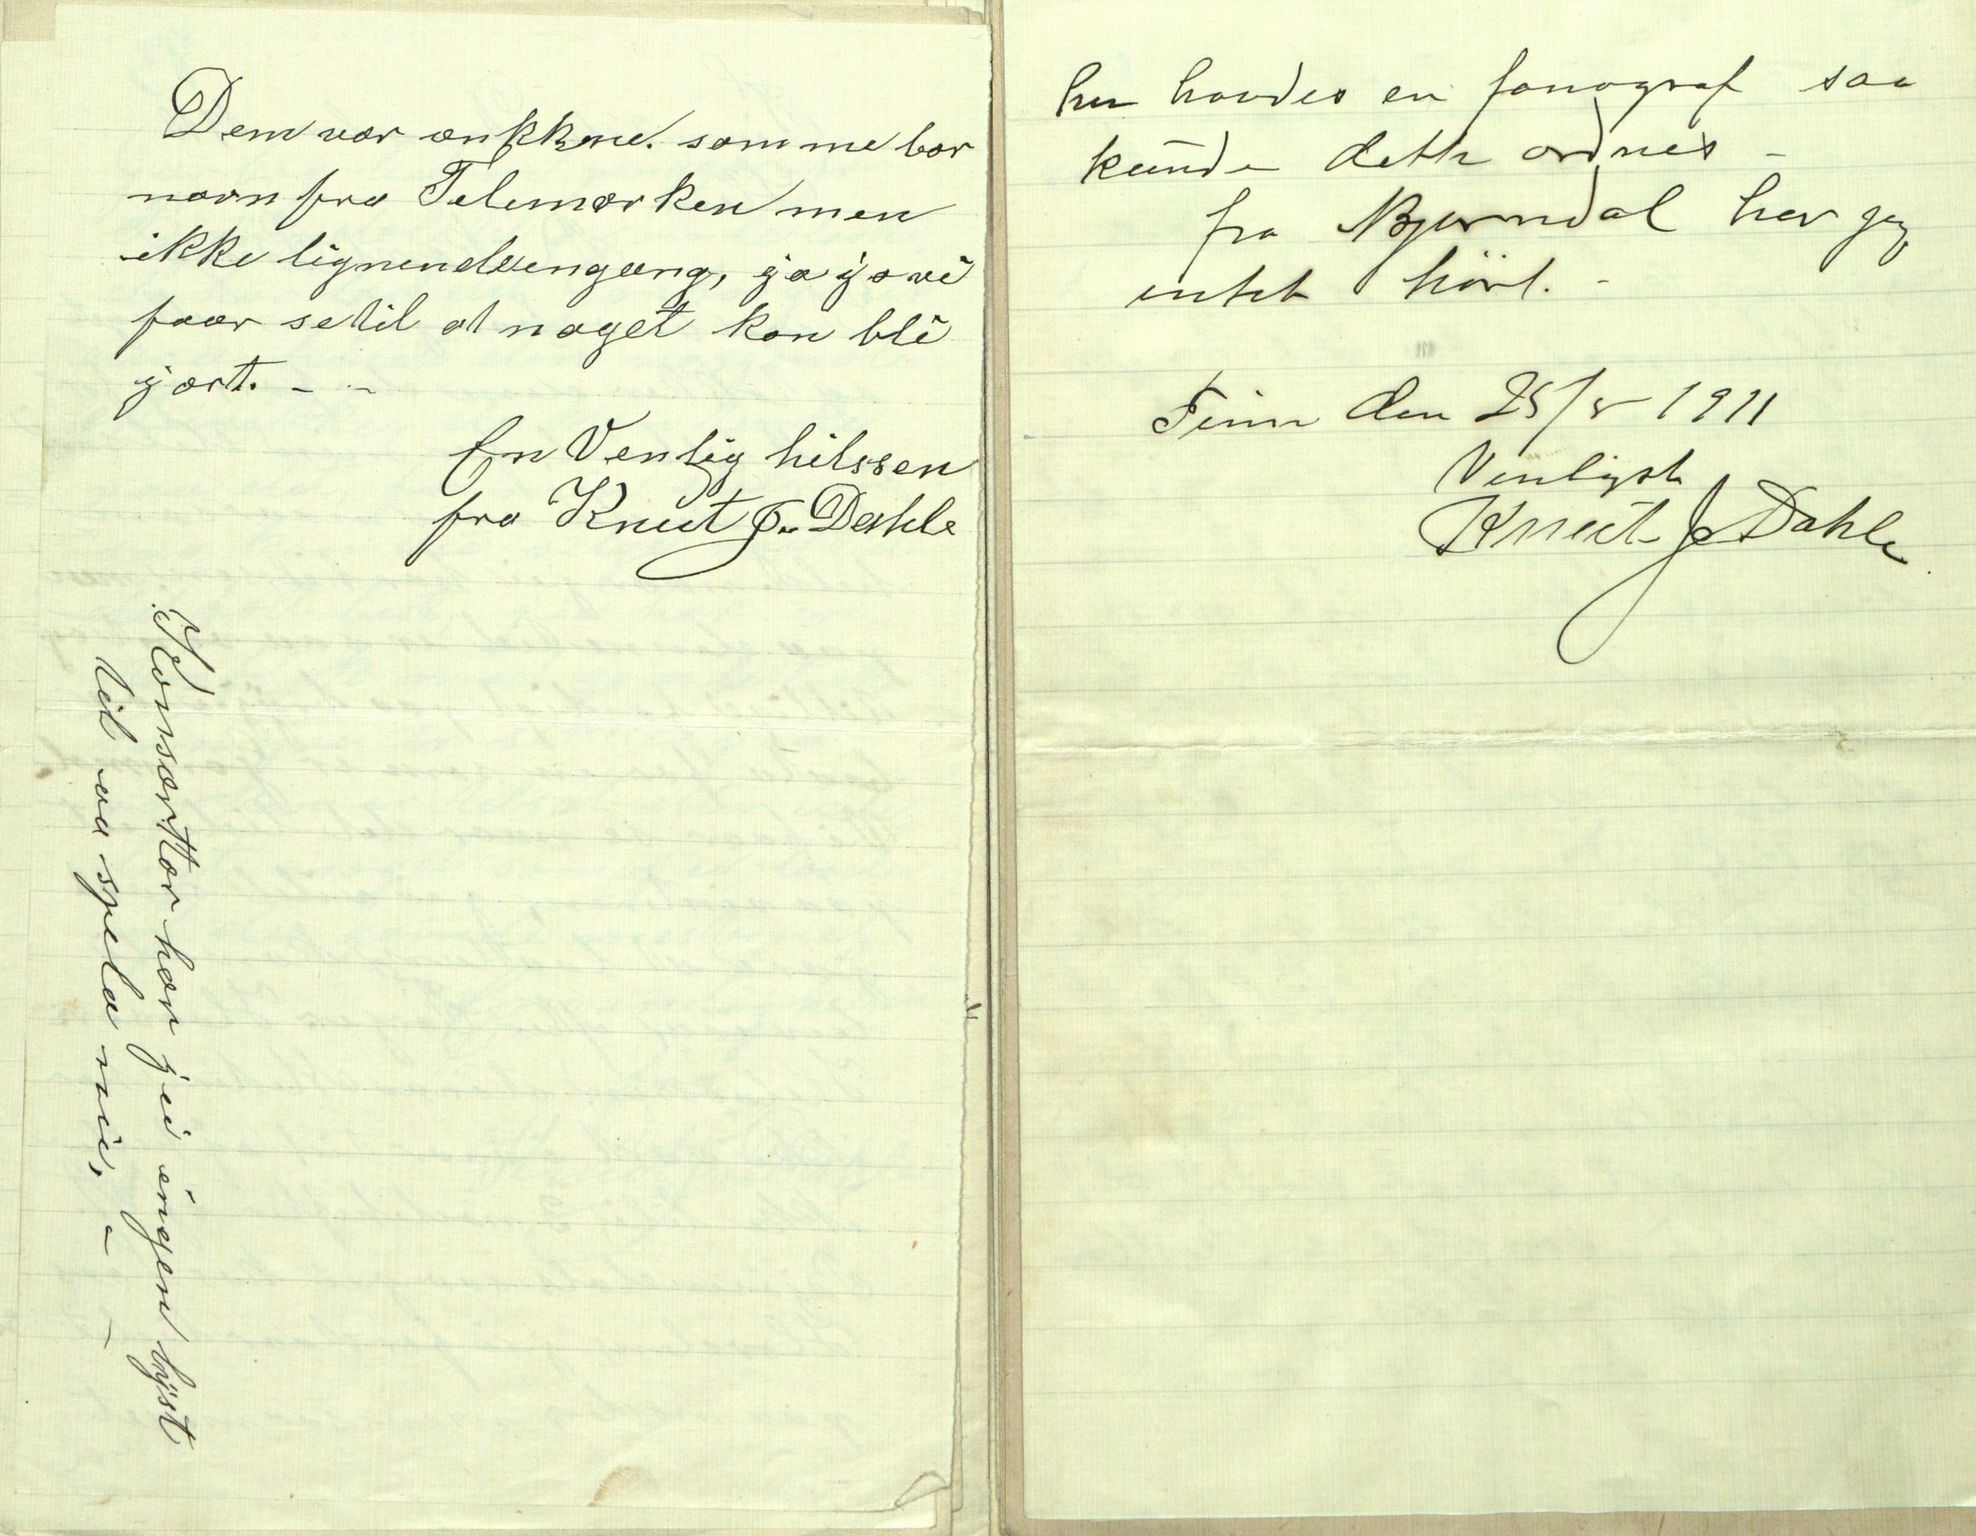 Dem var ænkkene. som me bar
navn fra Telemarken men
ikke lignendeengang, ja ja vi
faar se til at noget kan bli
gjort. - -
En Venlig hilssen
fra Knut J. Dahle
Konsærttær hær jei ingen lyst
tel aa spela nie, - -
her havdes en fonograf saa
kunde dette ordnes -
fra Bjørndal har jeg
intet hørt. -
Tinn den 25/5 1911
Venligst
Knut J Dahle